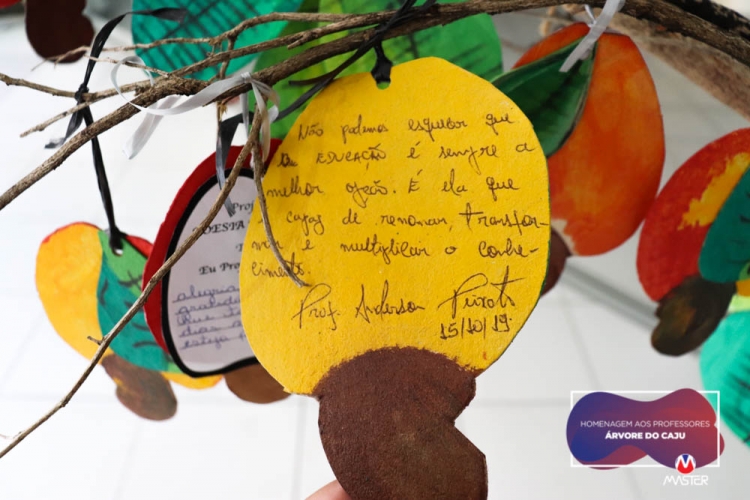 Não podemos esquecer que
a EDUCAÇÃO é sempre a
melhor opção. É ela que
capaz de renomar, transfor-
mar e multiplicar o conhe-
cimento.
Prof. Anderson Peixoto
15/10/19.
POESIA
Eu Pro
alegria
gratidã
Que
dias
esteja
HOMENAGEM AOS PROFESSORES
ÁRVORE DO CAJU
MASTER